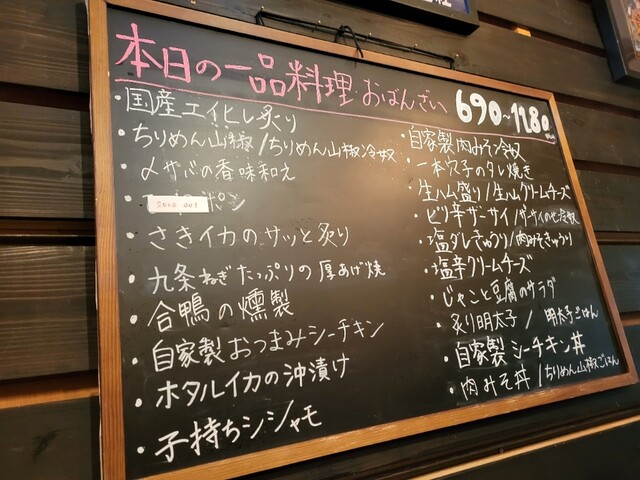 本日の一品料理・おばんざい 690~1180
・国産エイヒレ炙り
・ちりめん山椒/ちりめん山椒冷奴
・〆サバの香味和え
SOLD OUT ポン
・さきイカのサッと炙り
・九条ねぎたっぷりの厚あげ焼
・合鴨の燻製
・自家製おつまみシーチキン
・ホタルイカの沖漬け
・子持ちシシャモ
・自家製肉みそ冷奴
・一本穴子のタレ焼き
・生ハム盛り/生ハムクリームチーズ
・ピリ辛ザーサイ/ザーサイのせ冷奴
・塩ダレきゅうり/肉みそきゅうり
・塩辛クリームチーズ
・じゃこと豆腐のサラダ
・炙り明太子/明太子ごはん
・自家製シーチキン丼
・肉みそ丼/ちりめん山椒ごはん